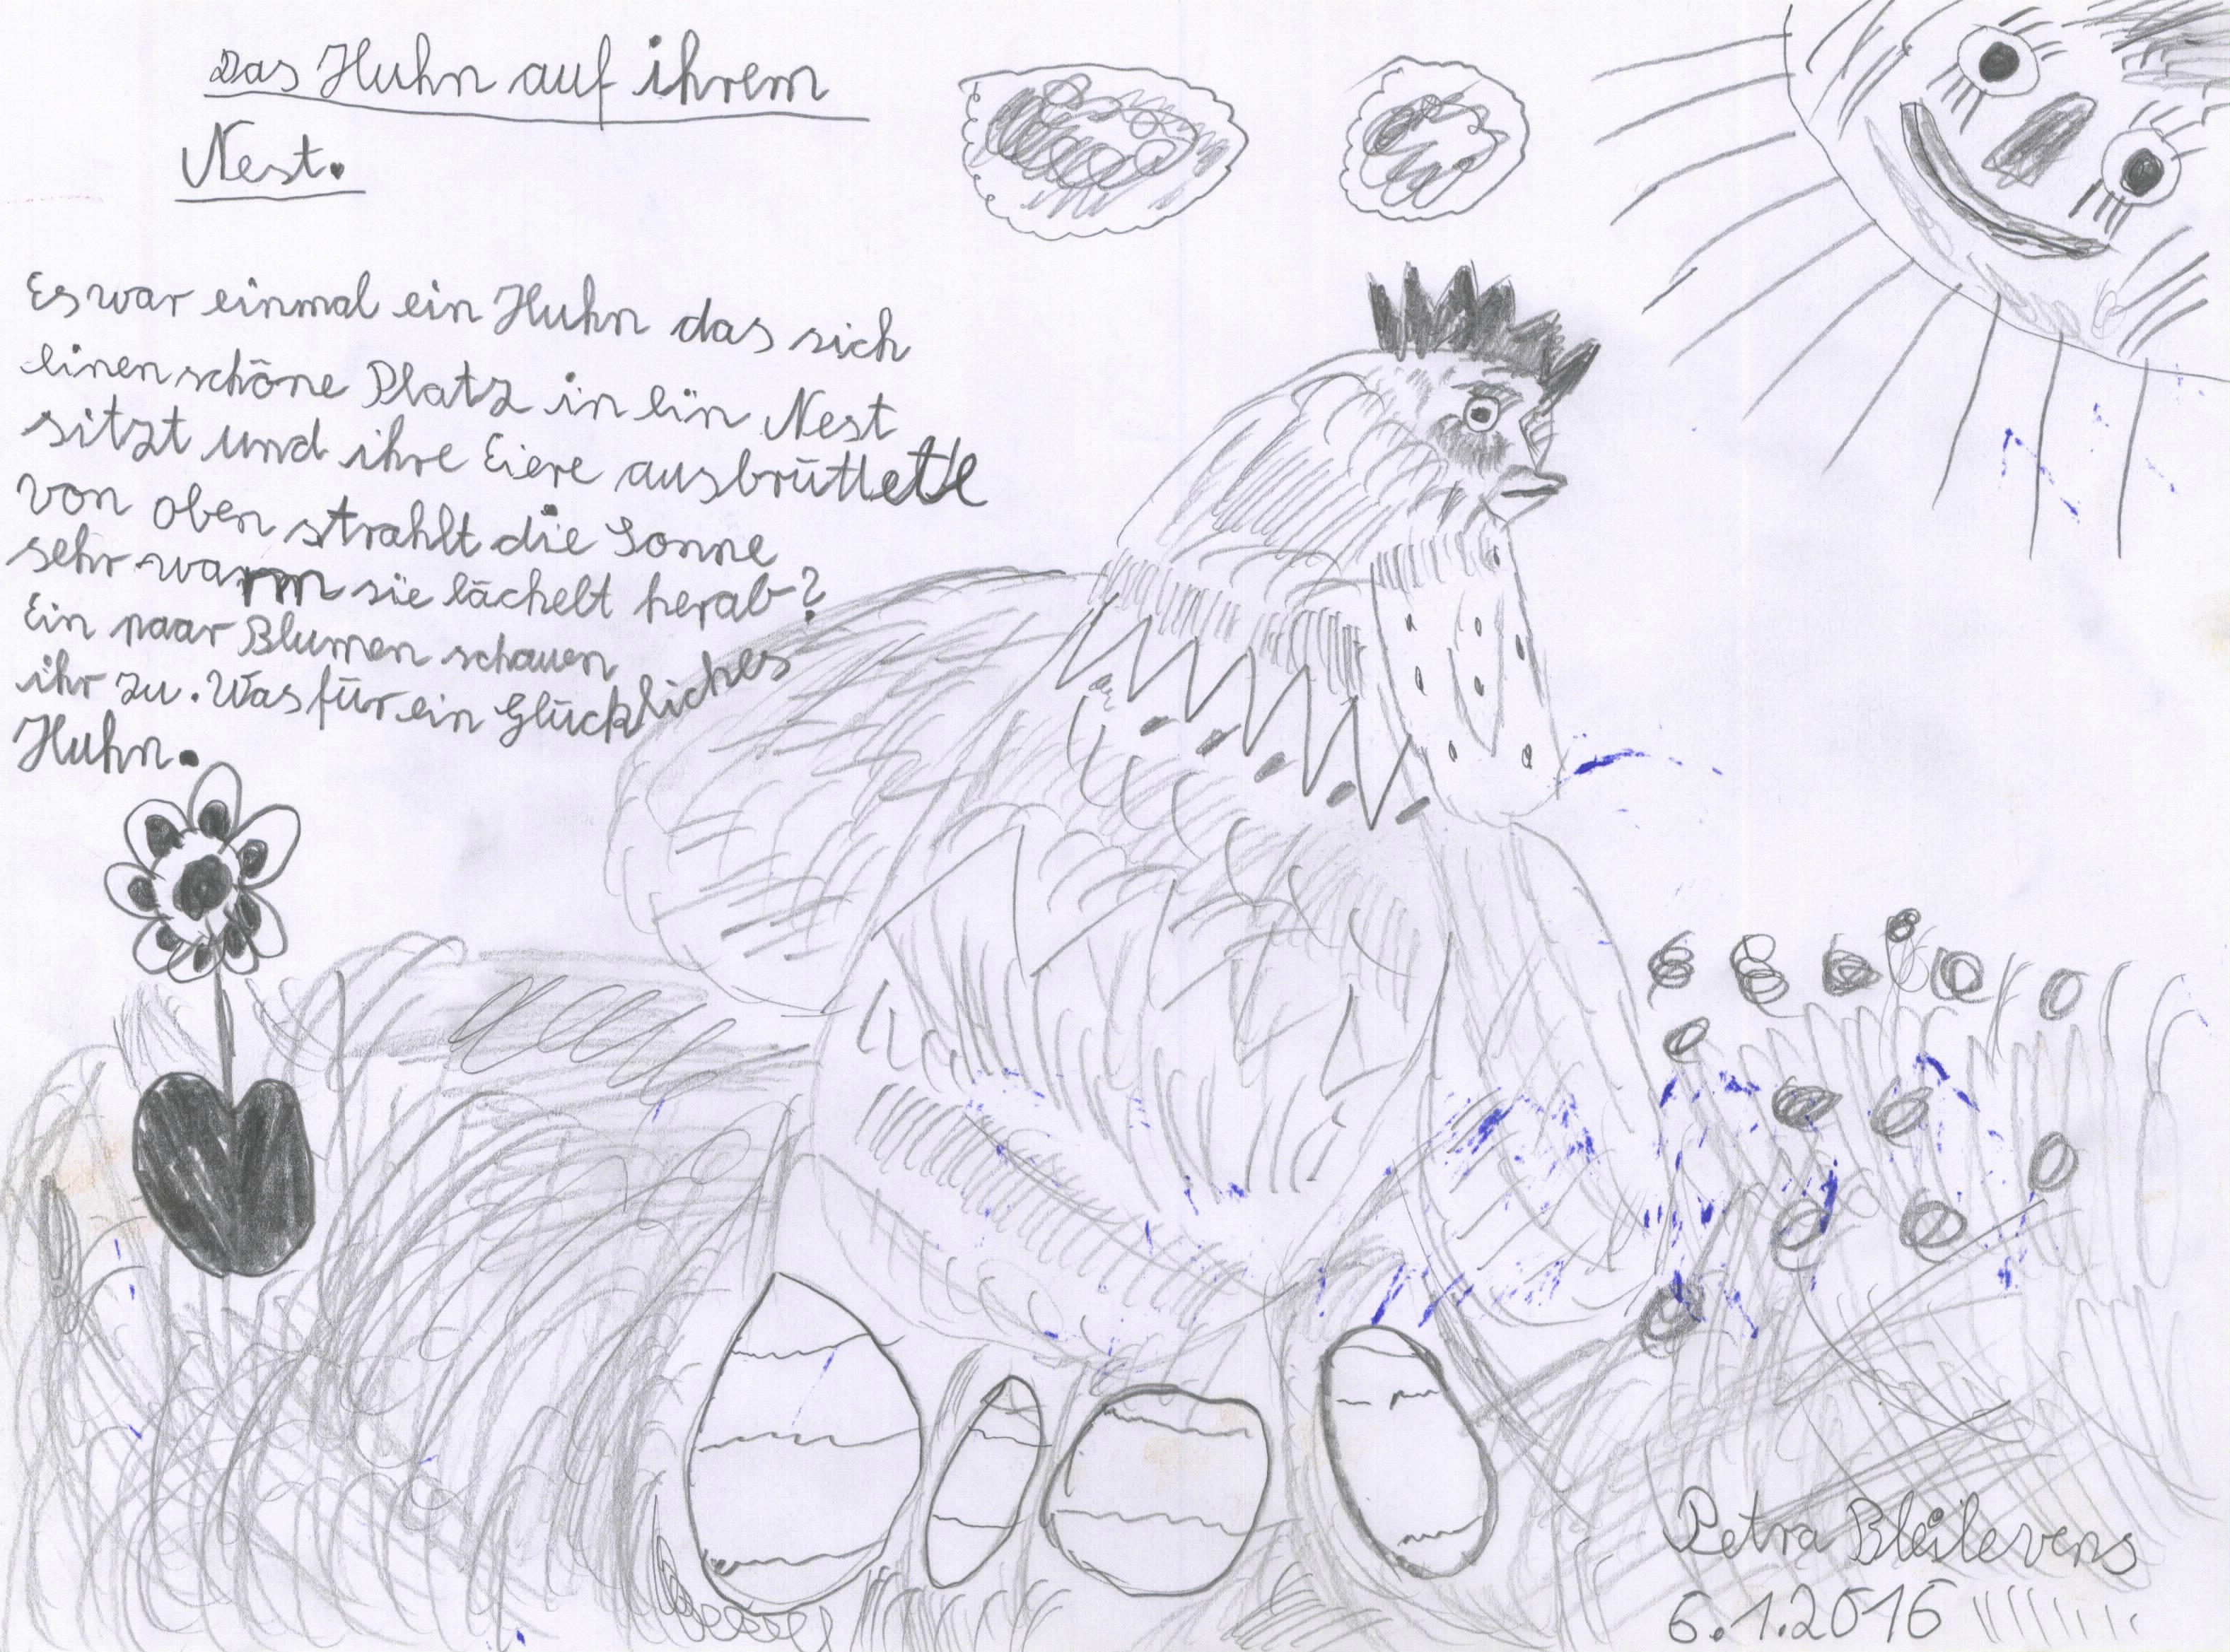 Das Huhn auf ihrem
Nest.
Es war einmal ein Huhn das sich
einen schöne Platz in ein Nest
sitzt und ihre Eiere ausbrüttete
von oben strahlt die Sonne
sehr warm sie lächelt herab?
Ein paar Blumen schauen
ihr zu. Was für ein Glückliches
Huhn.
Petra Bleilevens
6.1.2016